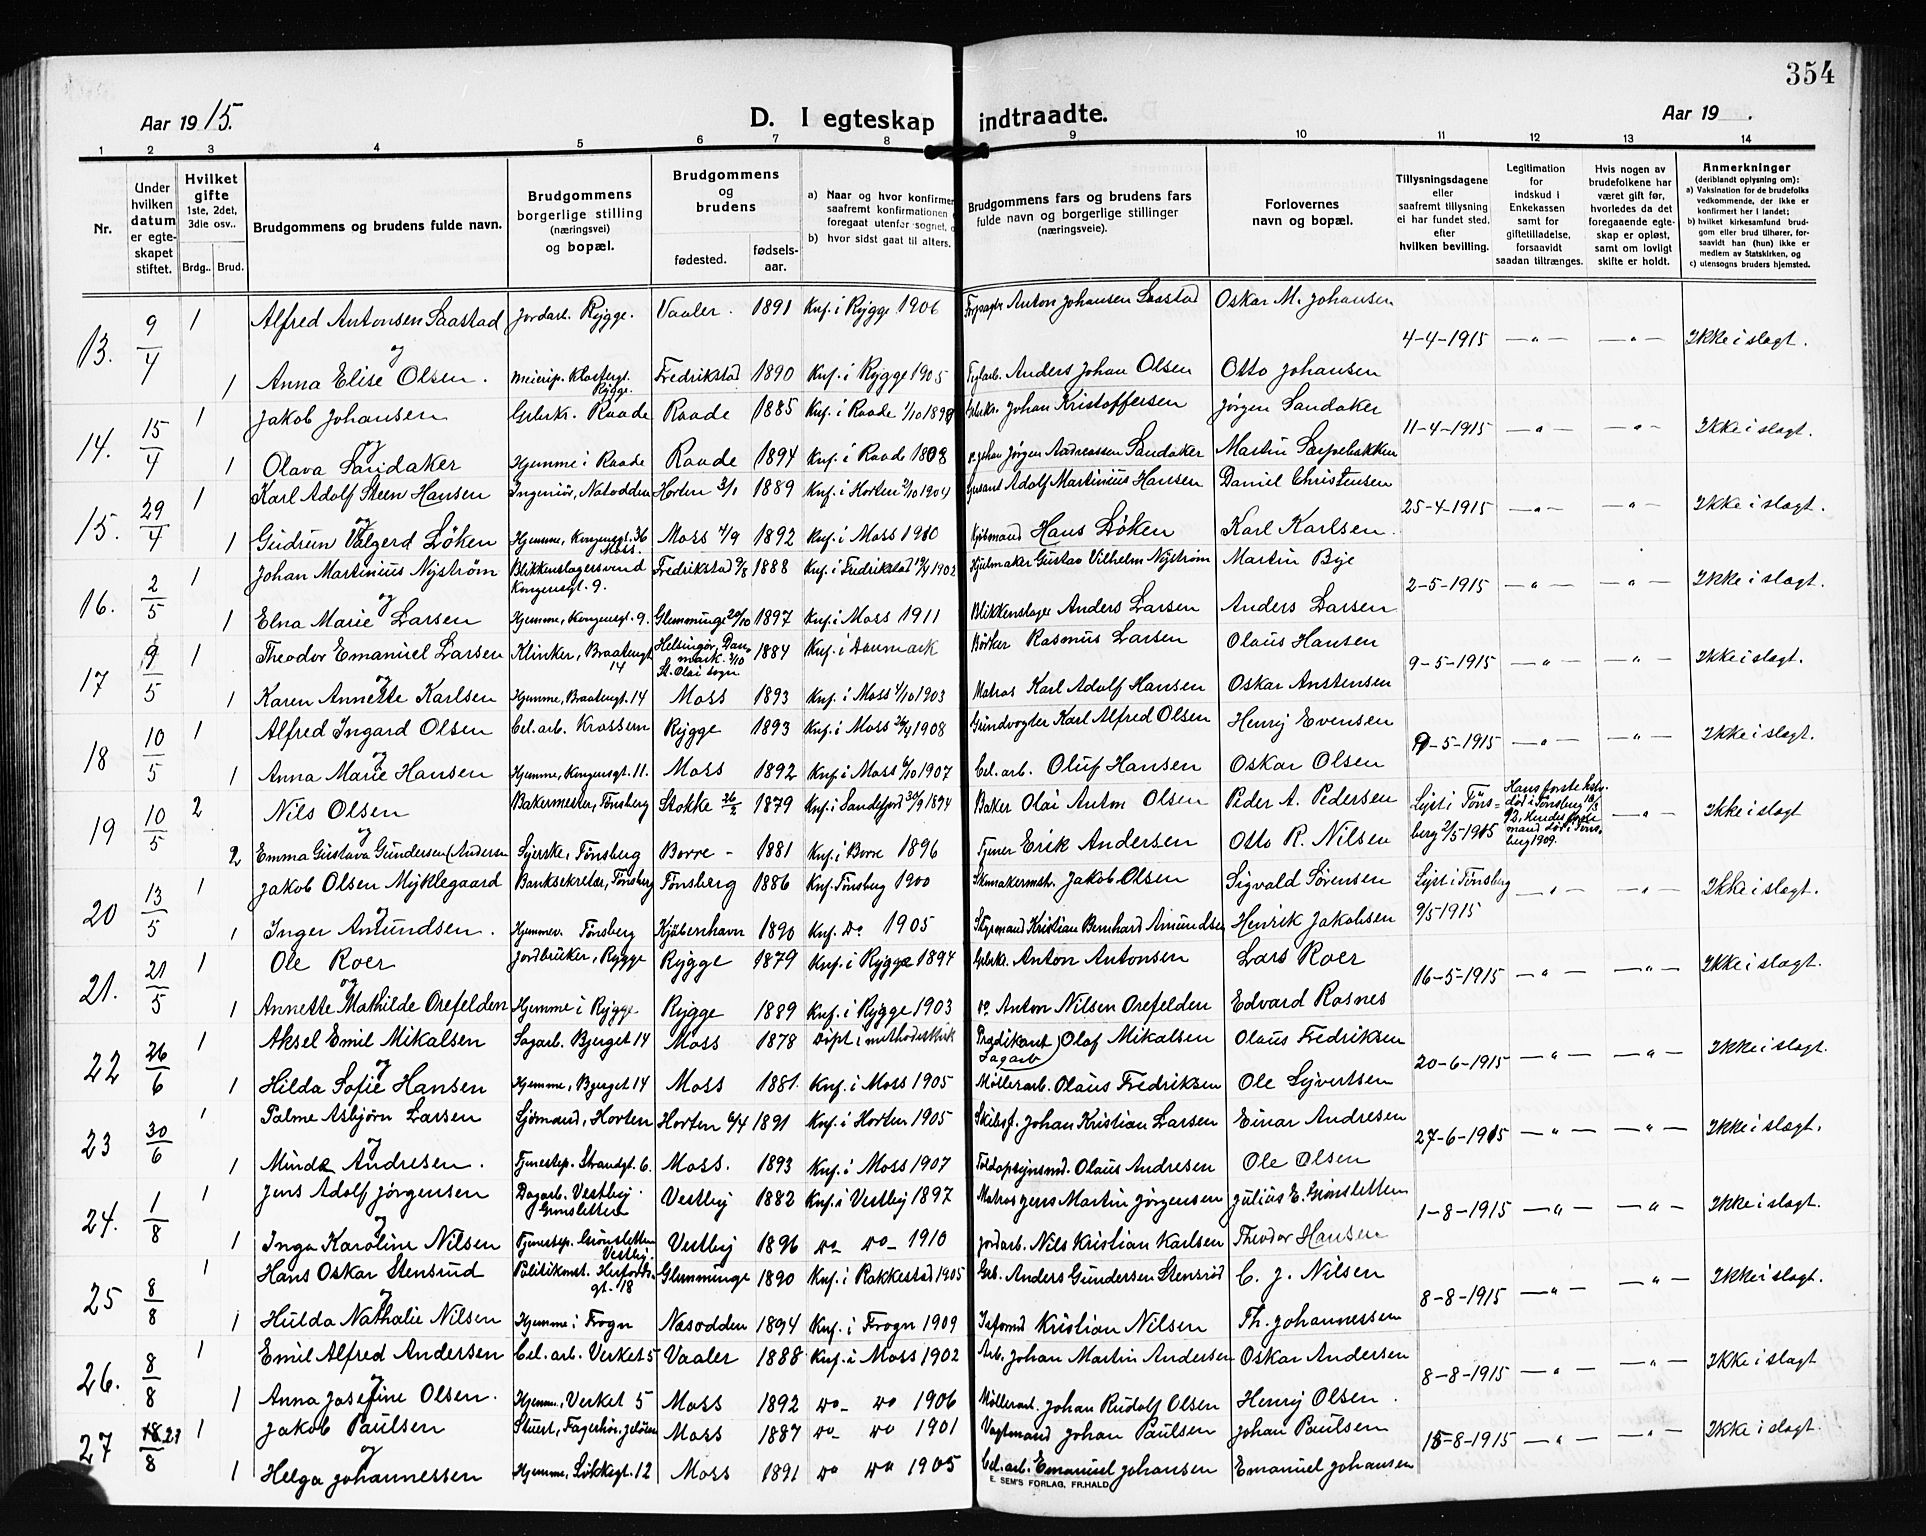 354
Aar 1915. D. I egteskap indtraadte. Aar 19 .
1 2 3 4 5 6 7 8 9 10 11 12 13 14
Nr.
Under hvilken datum er egteskapet stiftet.
Hvilket gifte 1ste, 2det, 3die osv..
Brdg.. Brud.
Brudgommens og brudens fulde navn.
Brudgommens borgerlige stilling (næringsvei) og bopæl.
Brudgommens og brudens
fødested. fødsels-aar.
a) Naar og hvor konfirmer saafremt konfirmationen foregaat utenfor sognet,
b) hvor sidst gaat til alters.
Brudgommens fars og brudens fars fulde navn og borgerlige stillinger (næringsveie).
Forlovernes navn og bopæl.
Tillysningsdagene eller saafremt tillysning ei har fundet sted. efter hvilken bevilling.
Legitimation for indskud i Enkekassen samt for giftetilladelse, forsaavidt saadan tiltrænges.
Hvis nogen av brudefolkene har været gift før, hvorledes da det foregaaende egteskap er opløst, samt om lovligt skifte er holdt.
Anmerkninger (deriblandt oplysning om):
a) Vaksination for de brudefolks vedkommende, der ikke er konfirmert her i landet;
b) hvilket kirkesamfund brudgom eller brud tilhører, forsaavidt han (hun) ikke er medlem av Statskirken, og
c) utensogns bruders hjemsted.
13. 9/4 1 Alfred Antonsen Saastad Jordarb. Rygge. Vaaler. 1891 Knf. i Rygge 1906 Anton Johansen Saastad Oskar M. Johansen
og 4-4-1915 —"— —"— Ikke i slagt.
1 Anna Elise Olsen. Meierip. Klostergt. Rygge. Fredrikstad 1890 Knf. i Rygge 1905 Anders Johan Olsen Otto Johansen
14. 15/4 1 Jakob Johansen Gbrkr. Raade Raade 1885 Knf. i Raade 1/10 1899 Gbrkr. Johan Kristoffersen Jørgen Sandaker
og 11-4-1915 —"— —"— Ikke i slagt.
1 Olava Sandaker Hjemme i Raade Raade 1894 Knf. i Raade 1908 Johan Jørgen Andreassen Sandaker Martin Sarpebakken
15. 29/4 1 Karl Adolf Steen Hansen Ingeniør, Notodden Horten 3/1 1889 Knf. i Horten 2/10 1904 Adolf Martinius Hansen Daniel Christensen
og 25-4-1915 —"— —"— Ikke i slagt.
1 Gudrun Valgerd Løken Hjemme, Kongensgt. 36 Moss. Moss 4/9 1892 Knf. i Moss 1910 Kjøbmand Hans Løken Karl Karlsen.
16. 2/5 1 Johan Martinius Nyström Blikkenslagersvend Kongensgt. 9. Fredrikstad 9/8 1888 Knf. i Fredrikstad 1902 Hjulmaker Gustav Vilhelm Nyström Martin Bye
og 2-5-1915 —"— —"— Ikke i slagt.
1 Elna Marie Larsen Hjemme, Kongensgt. 9. Glemminge 20/10 1897 Knf. i Moss 1911 Blikkenslager Anders Larsen Anders Larsen
17 9/5 1 Theodor Emanuel Larsen Klinker, Braatengt 14 Helsingør, Danmark. 3/10 St. Olai sogn 1884 Knf. i Danmark Bødker Rasmus Larsen Olaus Hansen
og 9-5-1915 —"— —"— Ikke i slagt.
1 Karen Annette Karlsen Hjemme, Braatengt. 14 Moss 1893 Knf. i Moss 4/10 1903 Matros Karl Adolf Hansen Oskar Anstensen
18 10/5 1 Alfred Ingard Olsen Cel. arb. Krossern Rygge 1893 Knf. i Moss 26/4 1908 Grundvogter Karl Alfred Olsen Henry Evensen
og 9-5-1915 —"— —"— Ikke i slagt.
1 Anna Marie Hansen Hjemme, Kongensgt. 11. Moss 1892 Knf. i Moss 6/10 1907 Cel. arb. Oluf Hansen Oskar Olsen
19 10/5 2 Nils Olsen Bakermester, Tønsberg Stokke 26/2 1879 Knf. i Sandefjord 30/9 1894 Baker Olai Anton Olsen Peder A. Pedersen
og Lyst i Tønsberg 2/5 1915 —"— Ikke i slagt
2 Emma Gustava Gundersen (Andersen Syerske, Tønsberg Borre - 1881 Knf. i Borre 1896 Tjener Erik Andersen Otto R. Nilsen
20 13/5 1 Jakob Olsen Myklegaard Banksekretær, Tønsberg Tønsberg 1886 Knf. Tønsberg 1900 Skomakermstr. Jakob Olsen Sigvald Sørensen
og Lyst i Tønsberg 9/5-1915 —"— —"— Ikke i slagt.
1 Inger Amundsen. Hjemmev. Tønsberg Kjøbenhavn 1890 Knf. do 1905 Styrmand Kristian Bernhard Amundsen Henrik Jakobsen
21. 21/5 1 Ole Roer Jordbruker, Rygge Rygge 1879 Knf. i Rygge 1894 Gbrkr. Anton Antonsen Lars Roer
og 16-5-1915 —"— —"— Ikke i slagt.
1 Annette Mathilde Orefelden Hjemme i Rygge Rygge 1889 Knf. i Rygge 1903 do Anton Nilsen Orefelden Edvard Rosnes
22 26/6 1 Aksel Emil Mikalsen Sagarb. Bjerget 14 Moss 1878 Døpt i methodistkirk Prædikant (Sagarb) Olof Mikalsen Olaus Fredriksen
og 20-6-1915 —"— —"— Ikke i slagt.
1 Hilda Sofie Hansen Hjemme, Bjerget 14 Moss 1881. Knf. i Moss 1905 Møllerarb. Olaus Fredriksen Ole Syvertsen
23 30/6 1 Palme Asbjørn Larsen Sjømand, Horten Horten 6/4 1891 Knf. i Horten 1905 Skibsf. Johan Kristian Larsen Einar Andresen
og 27-6-1915 —"— —"— Ikke i slagt.
1 Minda Andresen. Tjenestep. Strandgt. 6. Moss. 1893 Knf. i Moss 1907 Toldopsynsmd. Olaus Andresen Ole Olsen
24. 1/8 1 Jens Adolf Jørgensen Dagarb. Vestby. Grønsletten Vestby 1882 Knf. i Vestby 1897 Matros Jens Martin Jørgensen Julius E. Grønsletten
og 1-8-1915 —"— —"— Ikke i slagt.
1 Inga Karoline Nilsen Tjenestep. Grønsletten Vestby. Vestby 1896 do do 1910 Jordarb. Nils Kristian Karlsen Theodor Hansen
25 8/8 1 Hans Oskar Stensrud Politikonst. gt. 18 Glemminge 1890 Knf. i Rakkestad 1905 Gbr. Anders Gundersen Stensrød C. J. Nilsen
og 8-8-1915 —"— —"— Ikke i slagt.
1 Hulda Nathalie Nilsen Hjemme i Frogn Næsodden 1894 Knf. i Frogn 1909 Kristian Nilsen Th. Johannessen
26. 8/8 1 Emil Alfred Andersen Cel. arb. Verket 5 Vaaler 1888 Knf. i Moss 1902 Arb. Johan Martin Andersen Oskar Andersen
og 8-8-1915 —"— —"— Ikke i slagt
1 Anna Josefine Olsen. Hjemme, Verket 5 Moss 1892 do do 1906 Møllerarb. Johan Rudolf Olsen Henry Olsen.
27 /8 1 Jakob Paulsen Stuert, Jeløen Moss 1887 do do 1901 Vagtmand Johan Paulsen Johan Paulsen
og 15-8-1915 —"— —"— Ikke i slagt.
1 Helga Johannessen Hjemme, Løkkegt. 12 Moss 1891 do do 1905 Cel. arb. Emanuel Johansen Emanuel Johansen
E. SEM'S FORLAG, FR.HALD